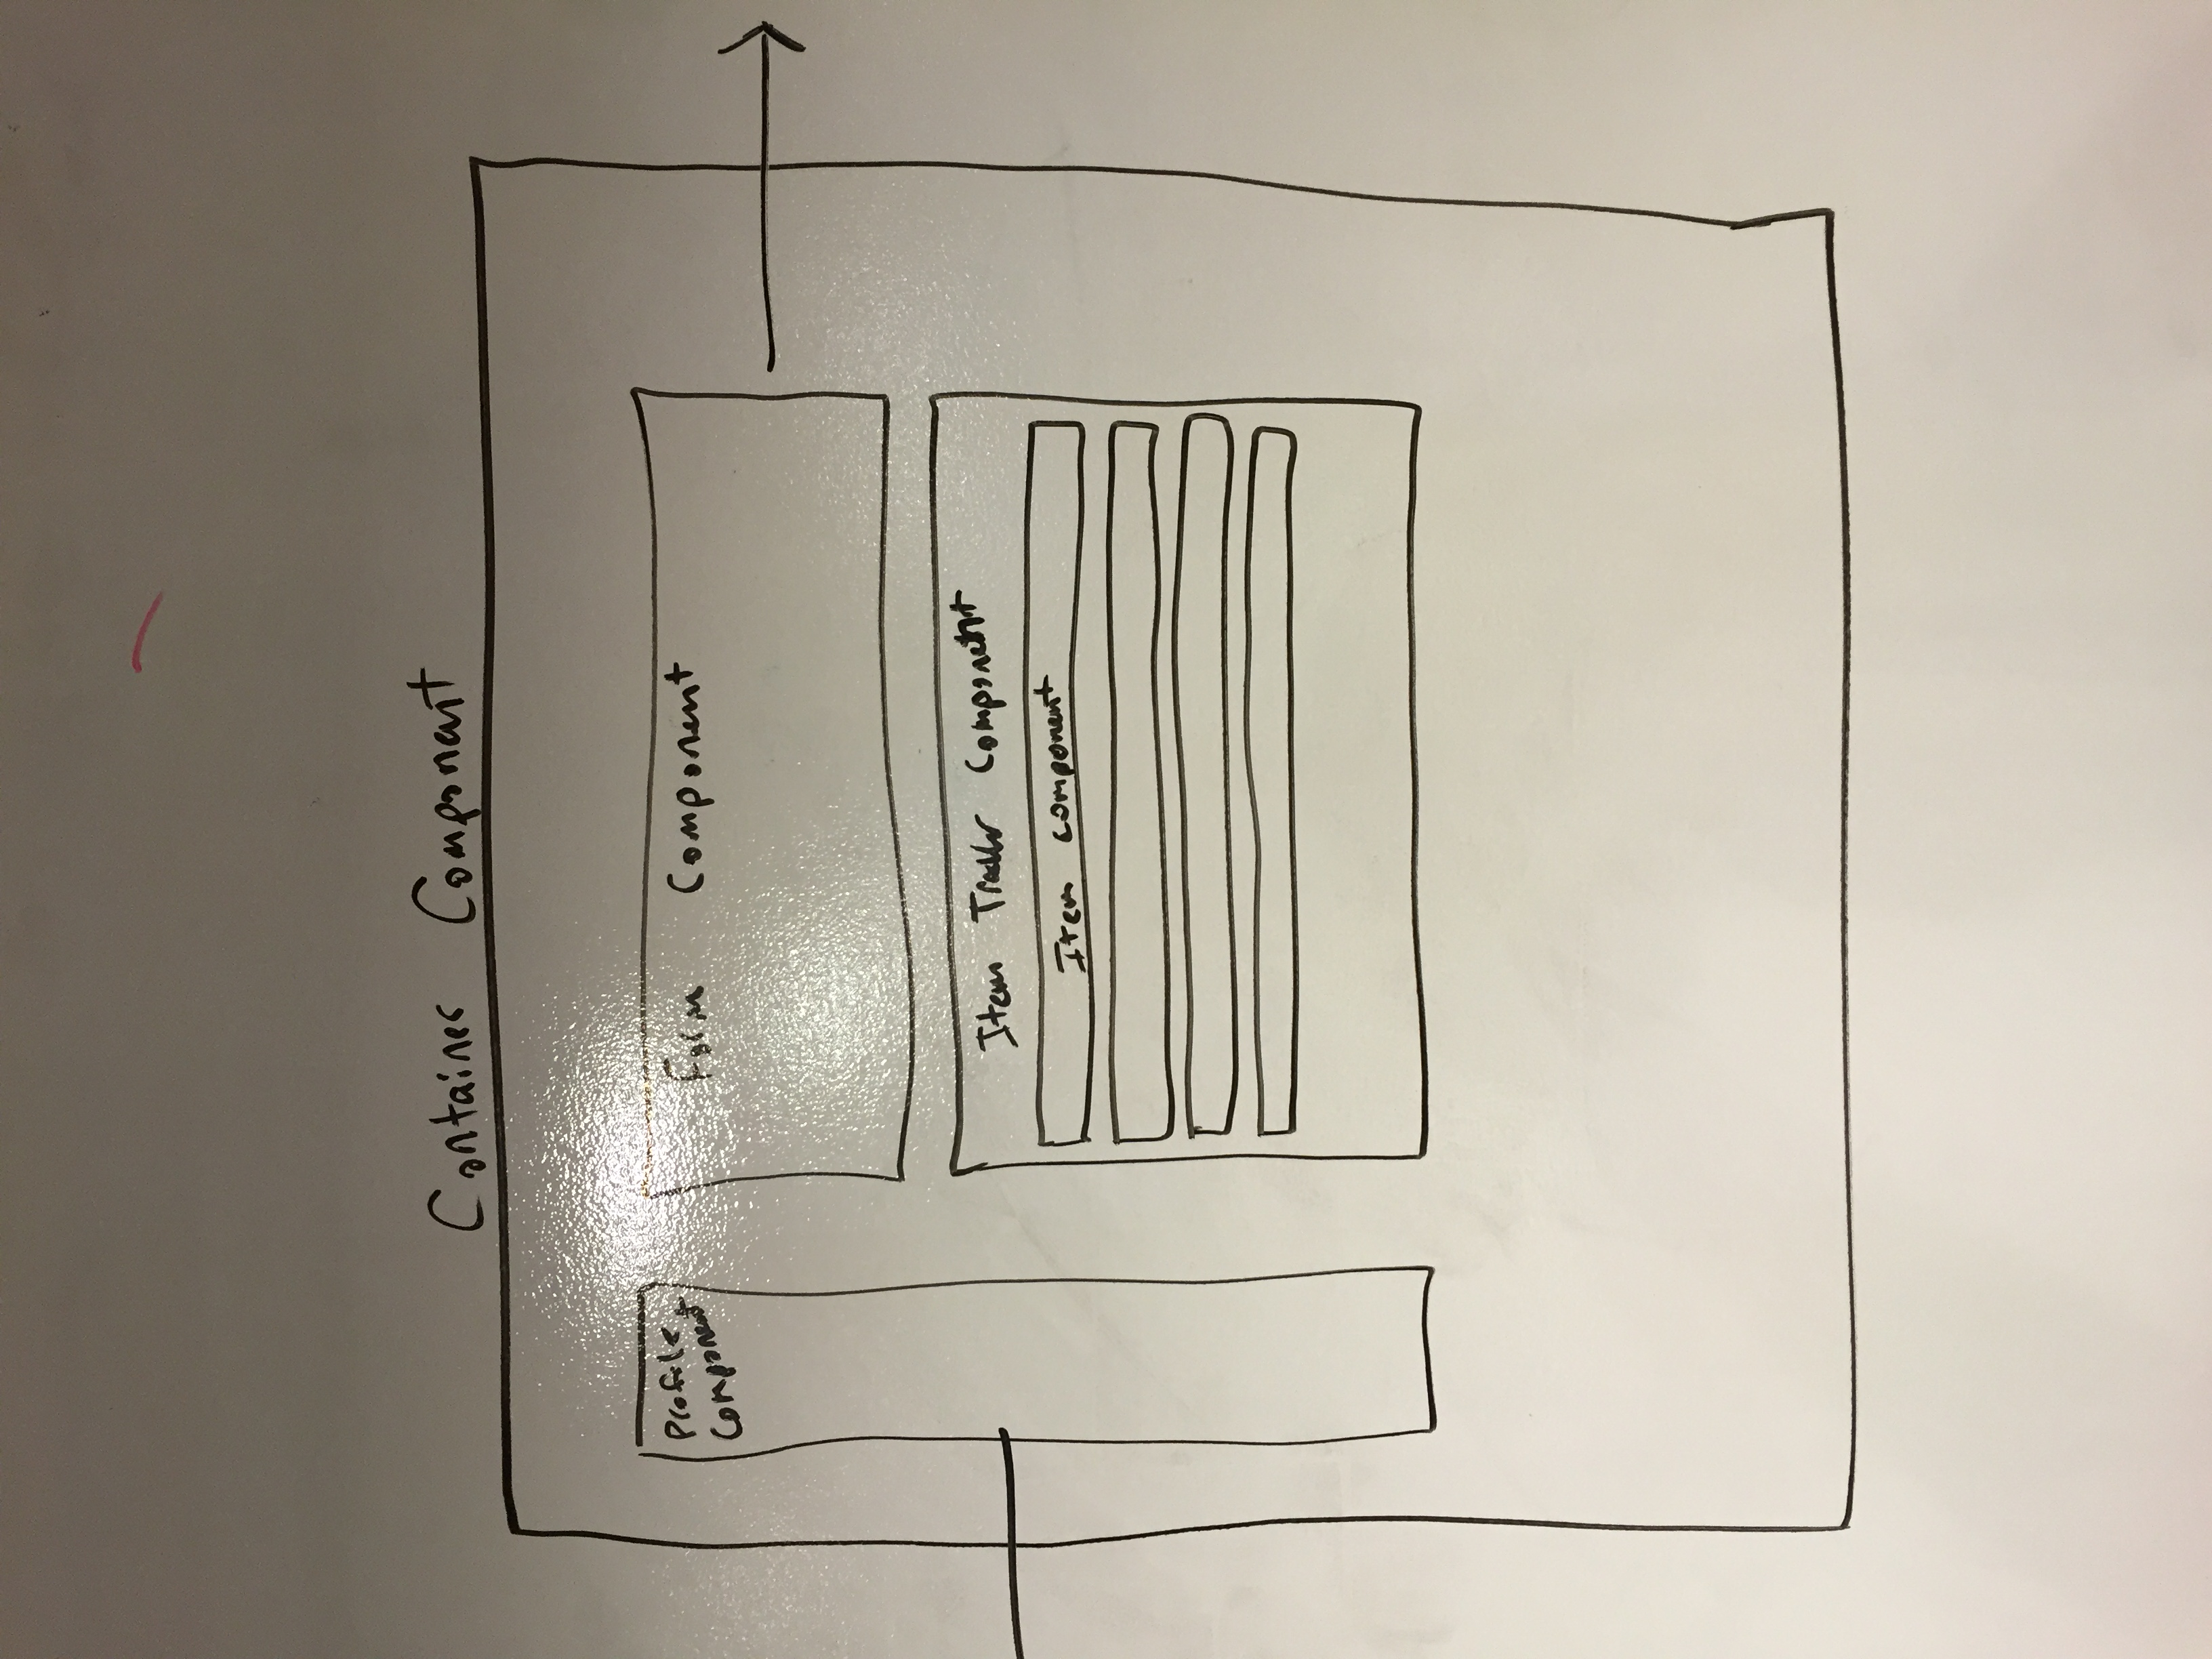 Container Component
Profile
Component
Form Component
Item Tracker Component
Item component